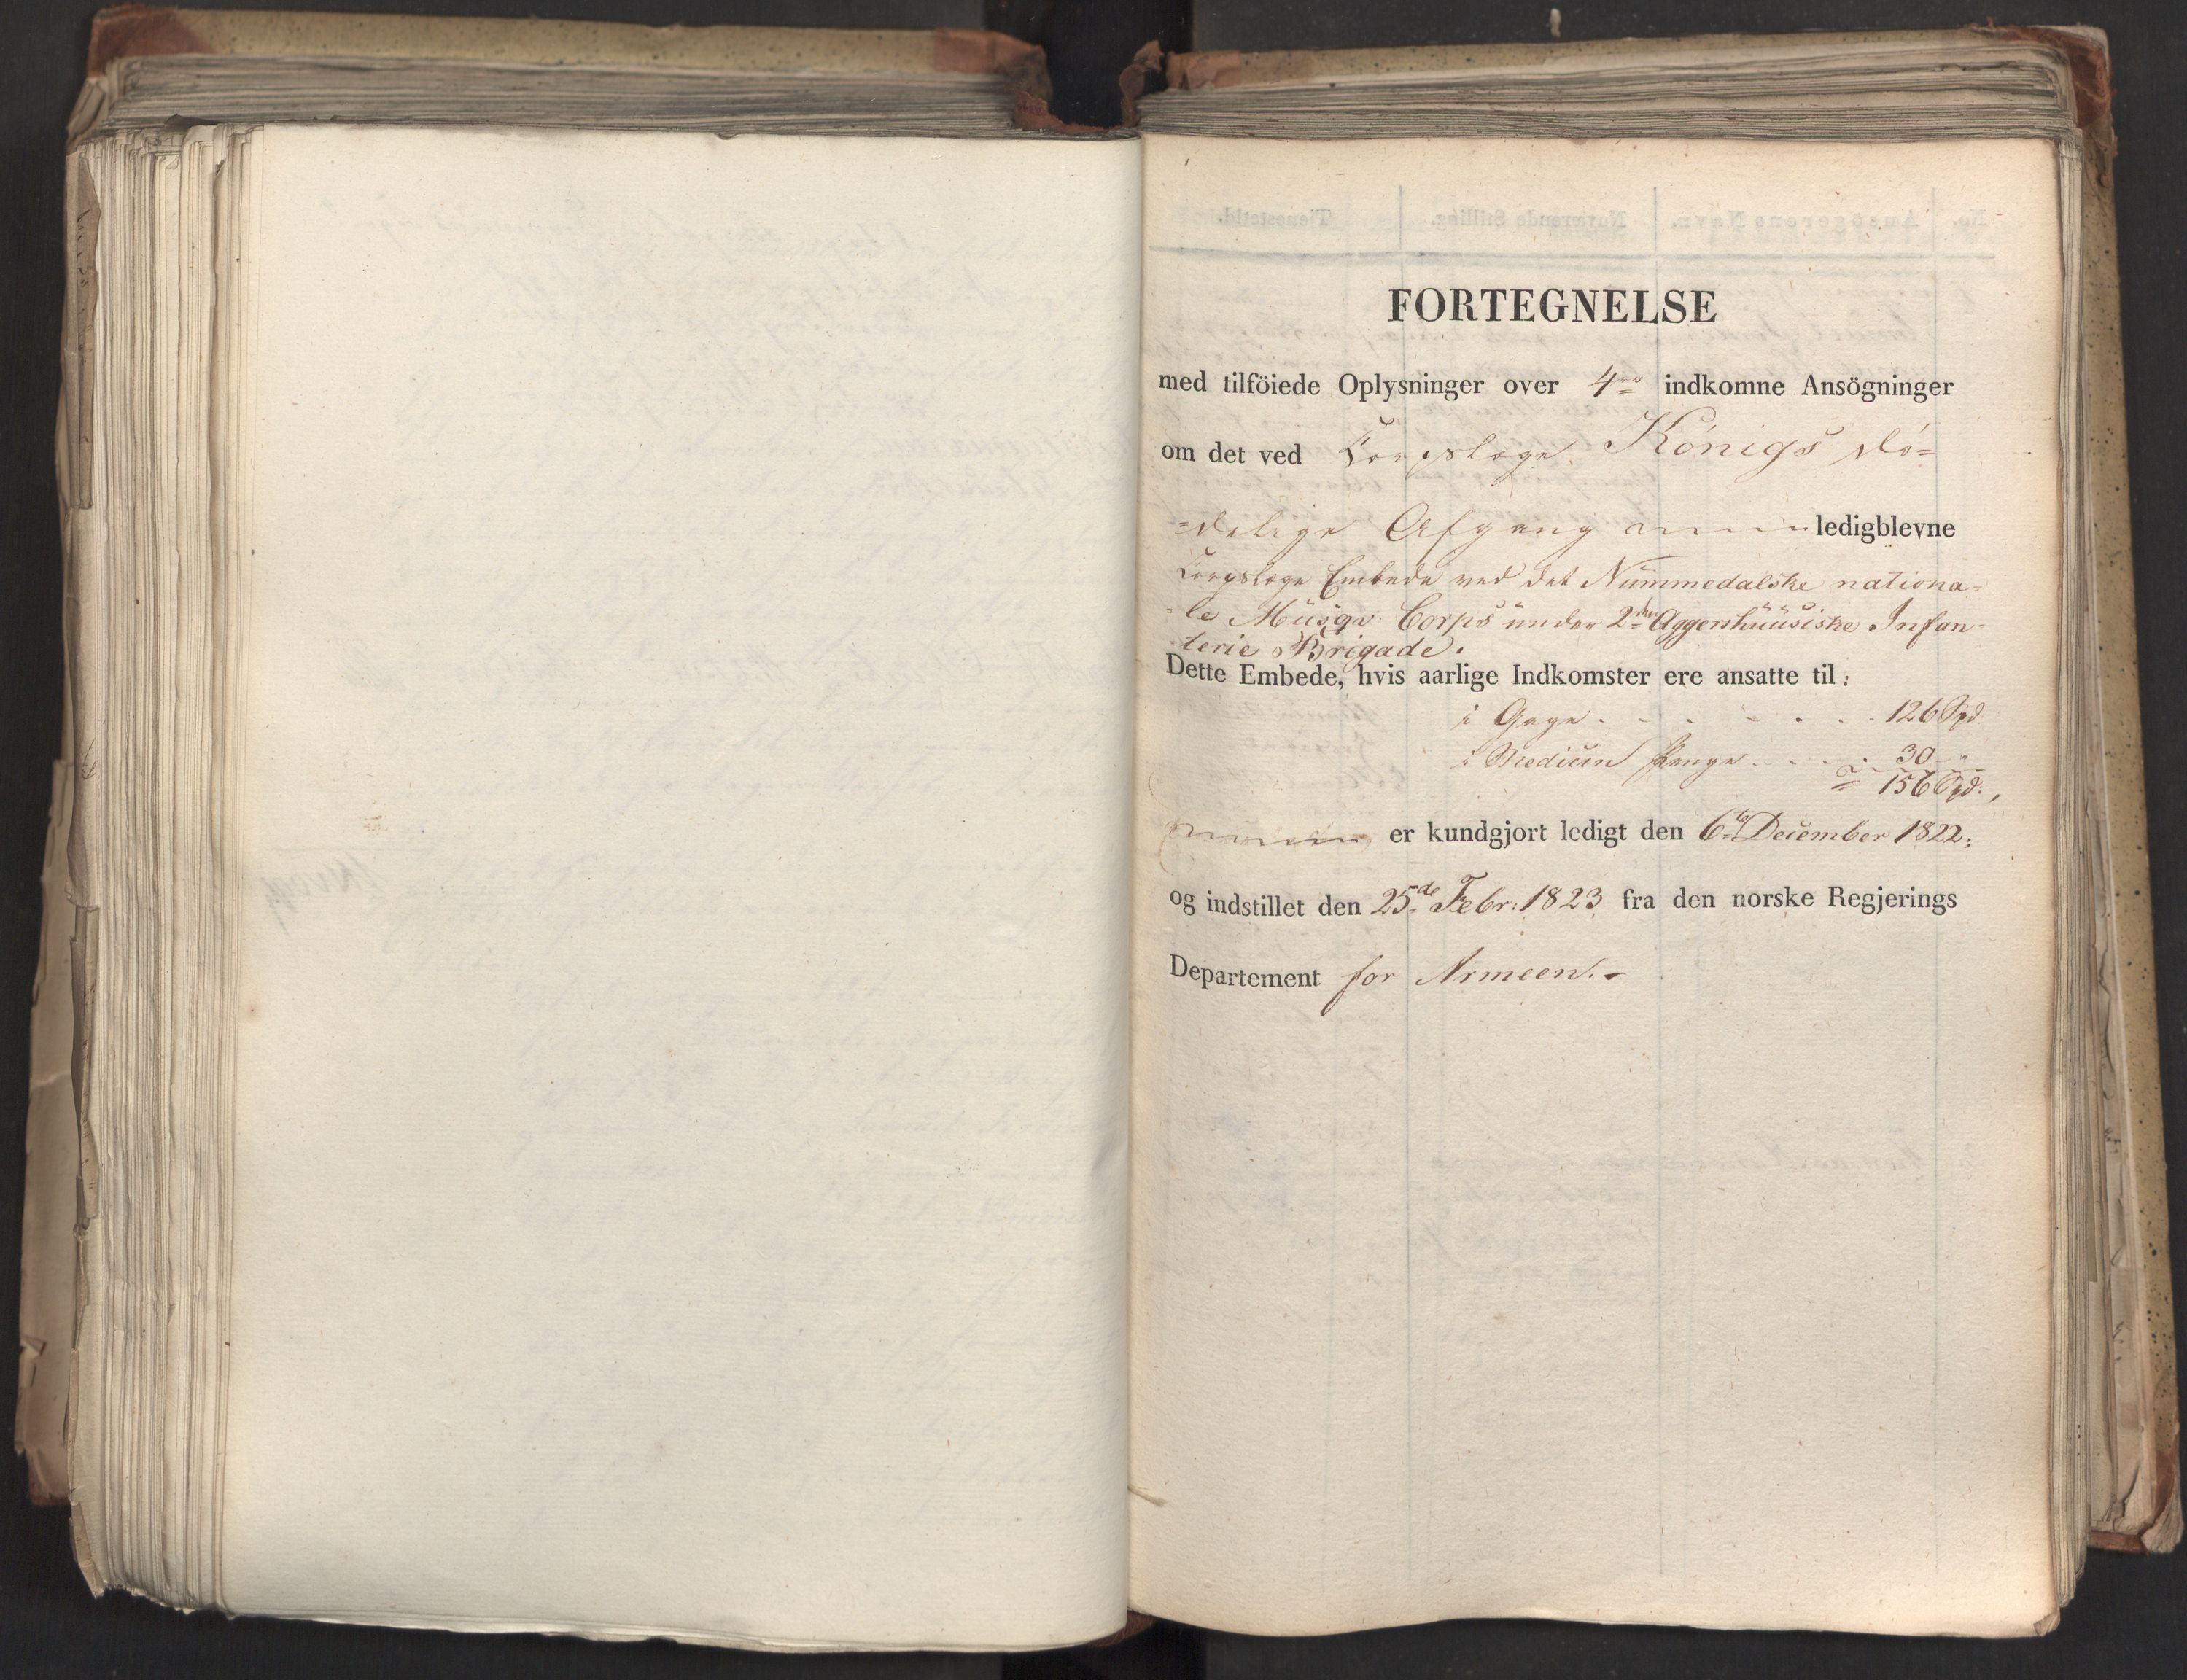 FORTEGNELSE
med tilföiede Oplysninger over 4re indkomne Ansögninger
om det ved Corpslæge Königs dö=
=delige Afgang ledigblevne
Corpslæge Embede ved det Nummedalske nationa=
=le Musqv. Corps under 2det Aggershuusiske Infan=
terie Brigade.
Dette Embede, hvis aarlige Indkomster ere ansatte til:
i Gage . . . . . . . 126 Spd
i Medicin Penge . . . . . 30 "
156 Spd.,
er kundgjort ledigt den 6te December 1822;
og indstillet den 25de Febr: 1823 fra den norske Regjerings
Departement for Armeen. -